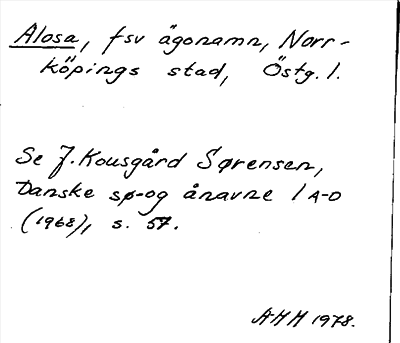 Alosa, fsv ägonamn, Norr-
köpings stad, Östg. l.
Se J. Kousgård Sørensen,
Danske sø- og ånavne 1 A-D
(1968), s. 57.
AHH 1978.